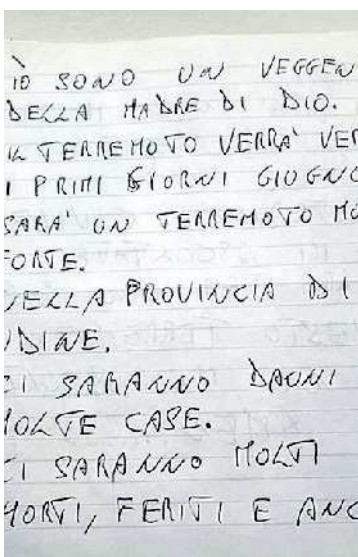 IO SONO UN VEGGEN
DELLA MADRE DI DIO.
IL TERREMOTO VERRA' VER
I PRIMI GIORNI GIUGNO
SARA' UN TERREMOTO MO
FORTE.
NELLA PROVINCIA DI
UDINE.
CI SARANNO DANNI
MOLTE CASE.
CI SARANNO MOLTI
MORTI, FERITI E ANC